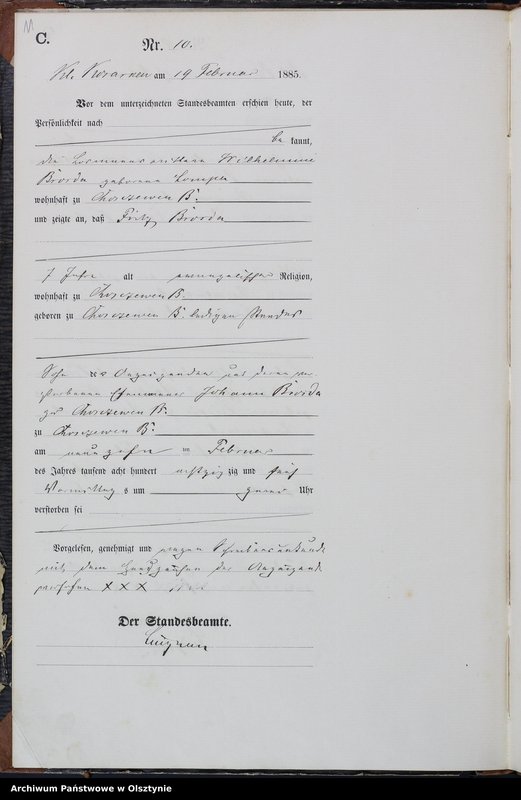 C.
Nr. 10.
Kl. am 19 Februar 1885.
Vor dem unterzeichneten Standesbeamten erschien heute, der
Persönlichkeit nach
be kannt,
die Losmannswittwe Wilhelmine
Brosda geborene
wohnhaft zu B.
und zeigte an, daß Fritz Brosda
7 Jahre alt evangelischer Religion,
wohnhaft zu B.
geboren zu B. ledigen Standes
Sohn der Anzeigenden und deren ver-
storbenen Ehemannes Johann Brosda
zu B.
zu B.
am neunzehn ten Februar
des Jahres tausend acht hundert achtzig zig und fünf
Vormittags um Uhr
verstorben sei
Vorgelesen, genehmigt und wegen Schreibensunkunde
mit dem Handzeichen der Anzeigende
versehen XXX
Der Standesbeamte.
Archiwum Państwowe w Olsztynie